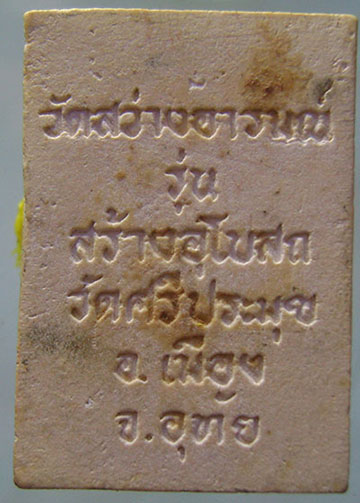 วัดสว่างอารมณ์
รุ่น
สร้างอุโบสถ
วัดศรีประมุข
อ. เมือง
จ. อุทัย